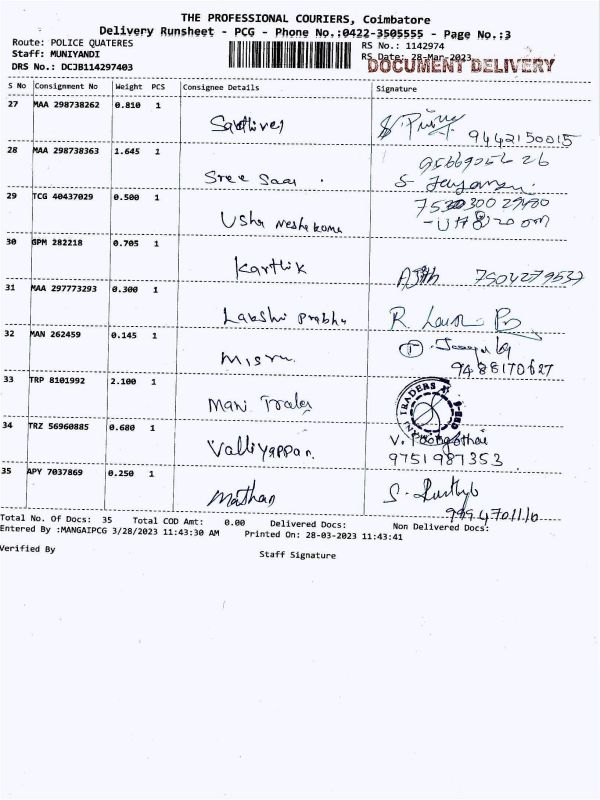 THE PROFESSIONAL COURIERS, Coimbatore
Delivery Runsheet - PCG - Phone No.:0422-3505555 - Page No.:3
Route: POLICE QUATERES
RS No.: 1142974
Staff: MUNIYANDI
RS Date: 28-Mar-2023
DRS No.: DCJB114297403
DOCUMENT DELIVERY
S No Consignment No Weight PCS Consignee Details Signature
27 MAA 298738262 0.810 1
9442150015
28 MAA 298738363 1.645 1
Sree Saai
29 TCG 40437029 0.500 1
Usha
30 GPM 282218 0.705 1
Karthik
31 MAA 297773293 0.300 1
Lakshi Prabhu R
32 MAN 262459 0.145 1
33 TRP 8101992 2.100 1
Mani Trades
MANI TRADERS
34 TRZ 56960885 0.680 1
Valliyappan. V. Poongothai
9751987353
35 APY 7037869 0.250 1
Mathan S.
Total No. Of Docs: 35 Total COD Amt: 0.00 Delivered Docs: Non Delivered Docs:
Entered By :MANGAIPCG 3/28/2023 11:43:30 AM Printed On: 28-03-2023 11:43:41
Verified By
Staff Signature